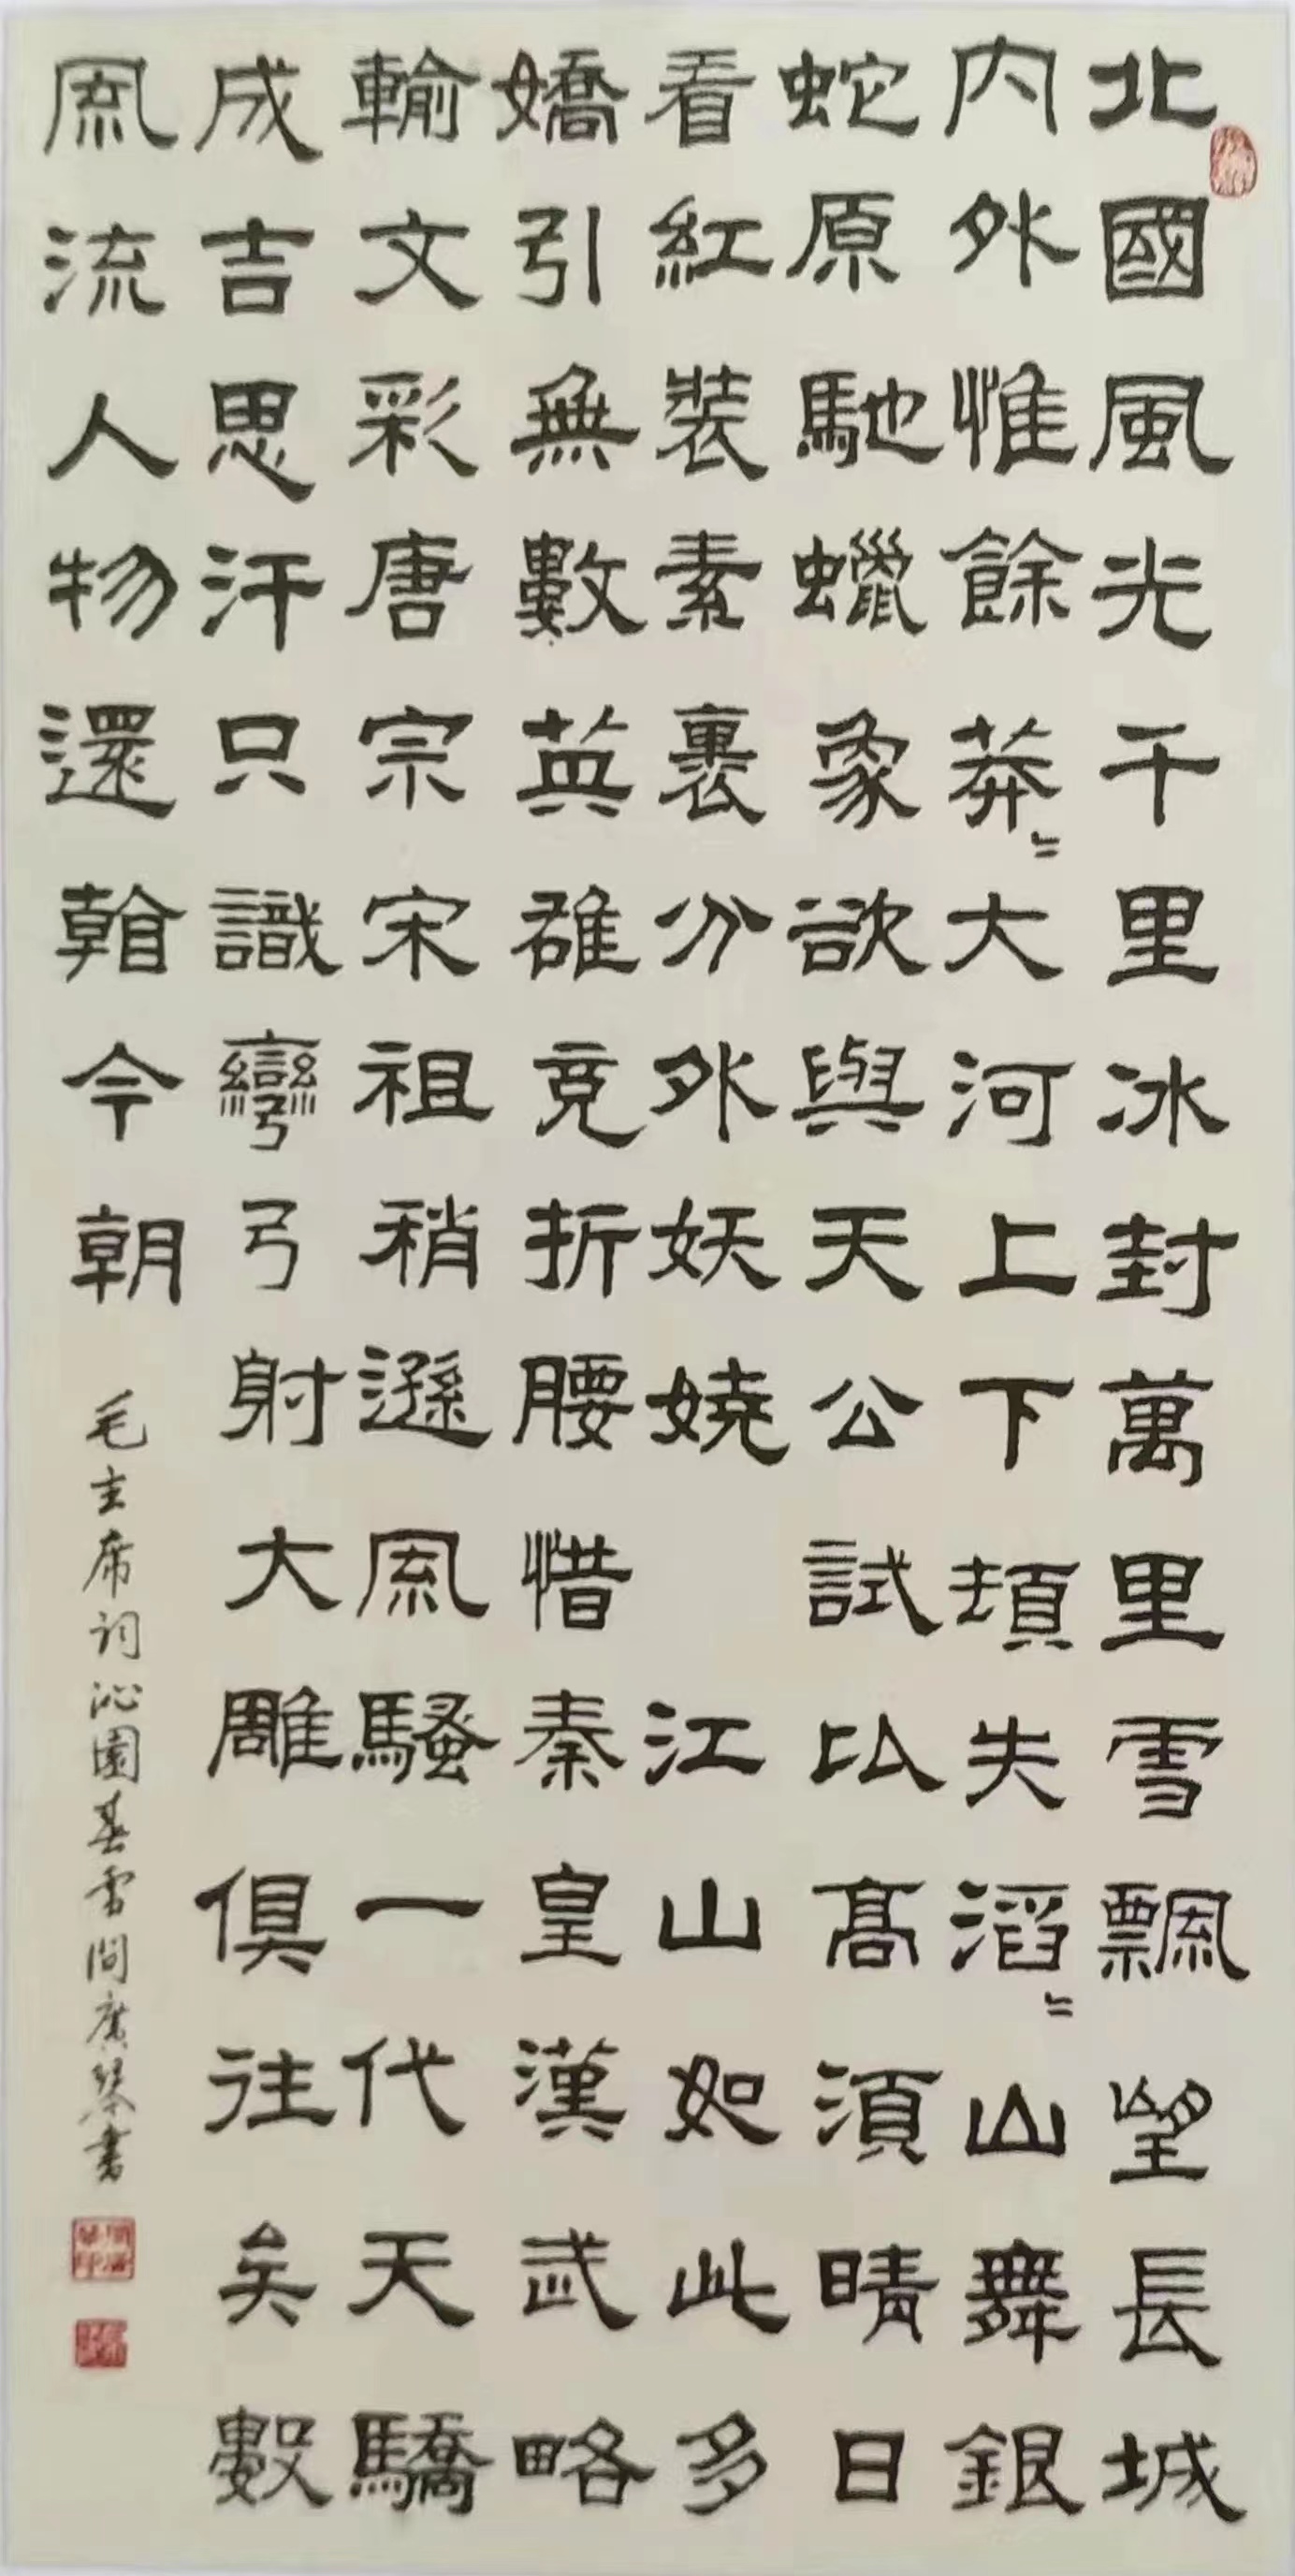 北國風光千里冰封萬里雪飄望長城
内外惟餘莽〻大河上下頓失滔〻山舞銀
蛇原馳蠟象欲與天公試以高須晴日
看紅裝素裹分外妖嬈 江山如此多
嬌引無數英雄竞折腰惜秦皇漢武略
輸文彩唐宗宋祖稍遜風騷一代天驕
成吉思汗只識彎弓射大雕俱往矣數
風流人物還看今朝
毛主席词沁園春雪廣琴書